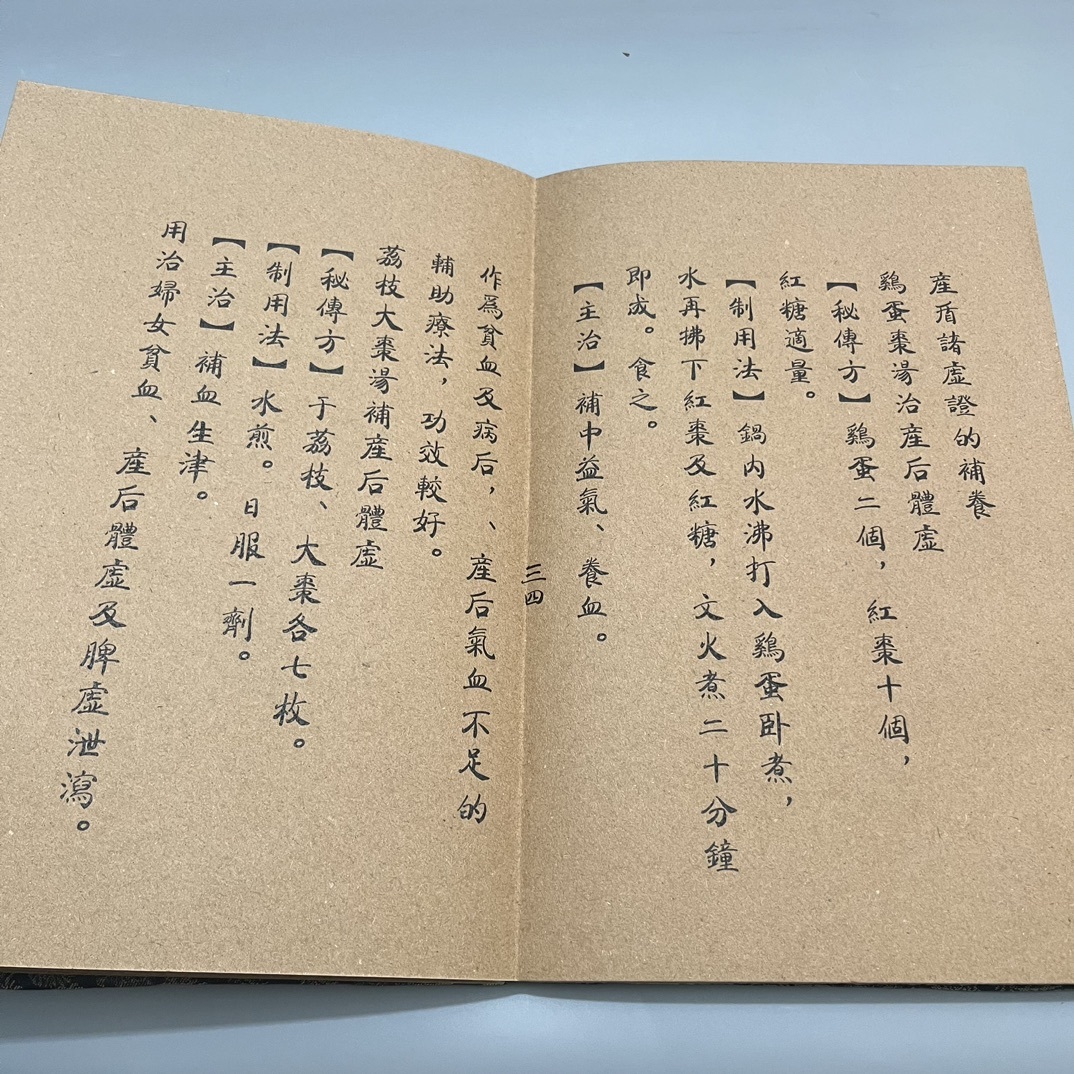 産盾諸虛證的補養
鷄蛋棗湯治産后體虛
【秘傳方】鷄蛋二個，紅棗十個，
紅糖適量。
【制用法】鍋内水沸打入鷄蛋卧煮，
水再拂下紅棗及紅糖，文火煮二十分鐘
即成。食之。
【主治】補中益氣、養血。
三四
作爲貧血及病后，、産后氣血不足的
輔助療法，功效較好。
荔枝大棗湯補産后體虛
【秘傳方】于荔枝、大棗各七枚。
【制用法】水煎。日服一劑。
【主治】補血生津。
用治婦女貧血、産后體虛及脾虛泄瀉。